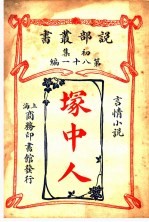 說部叢書
初集
第八十一編
言情小說
塚中人
上海
商務印書館發行